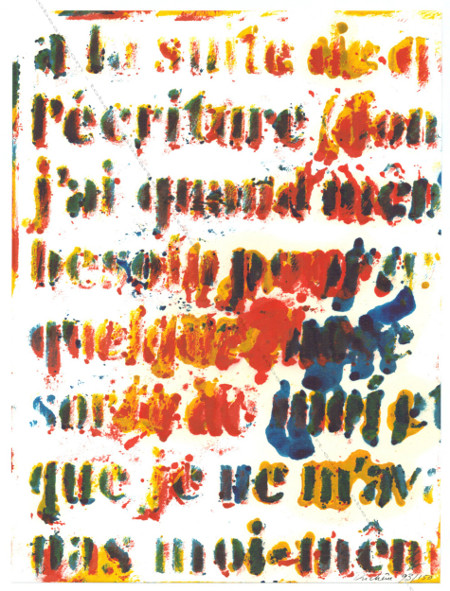 à la suite de q
l'écriture don
j'ai quand mêm
besoin pour
quelque
sorte de
que je ne m'av
pas moi-mêm
93/150